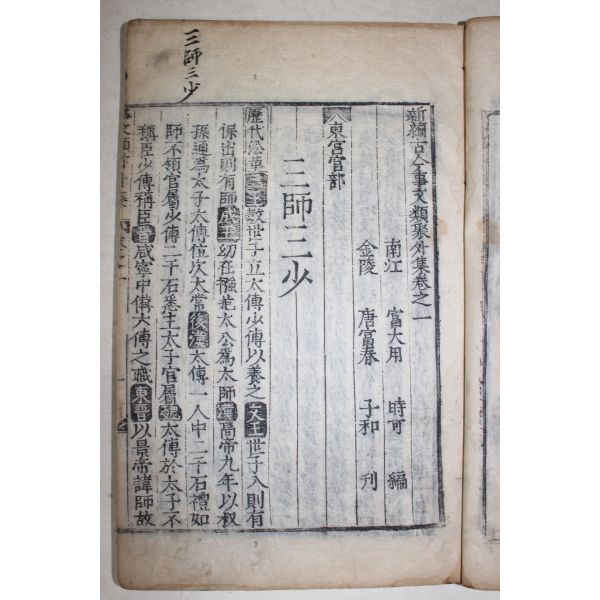 三師三少
新編古今事文類聚外集卷之一
南江 富大用 時可 編
金陵 唐富春 子和 刋
東宮官部
三師三少
歷代沿革三王教世子立太傅少傅以養之文王世子入則有
保出則有師成王幼在襁褓太公為太師漢高帝九年以叔
孫通為太子太傅位次太常後漢太傅一人中二千石禮如
師不領官屬少傅二千石悉主太子官屬魏太傅於太子不
稱臣少傅稱臣晉咸寧中備六傅之職東晉以景帝諱師故